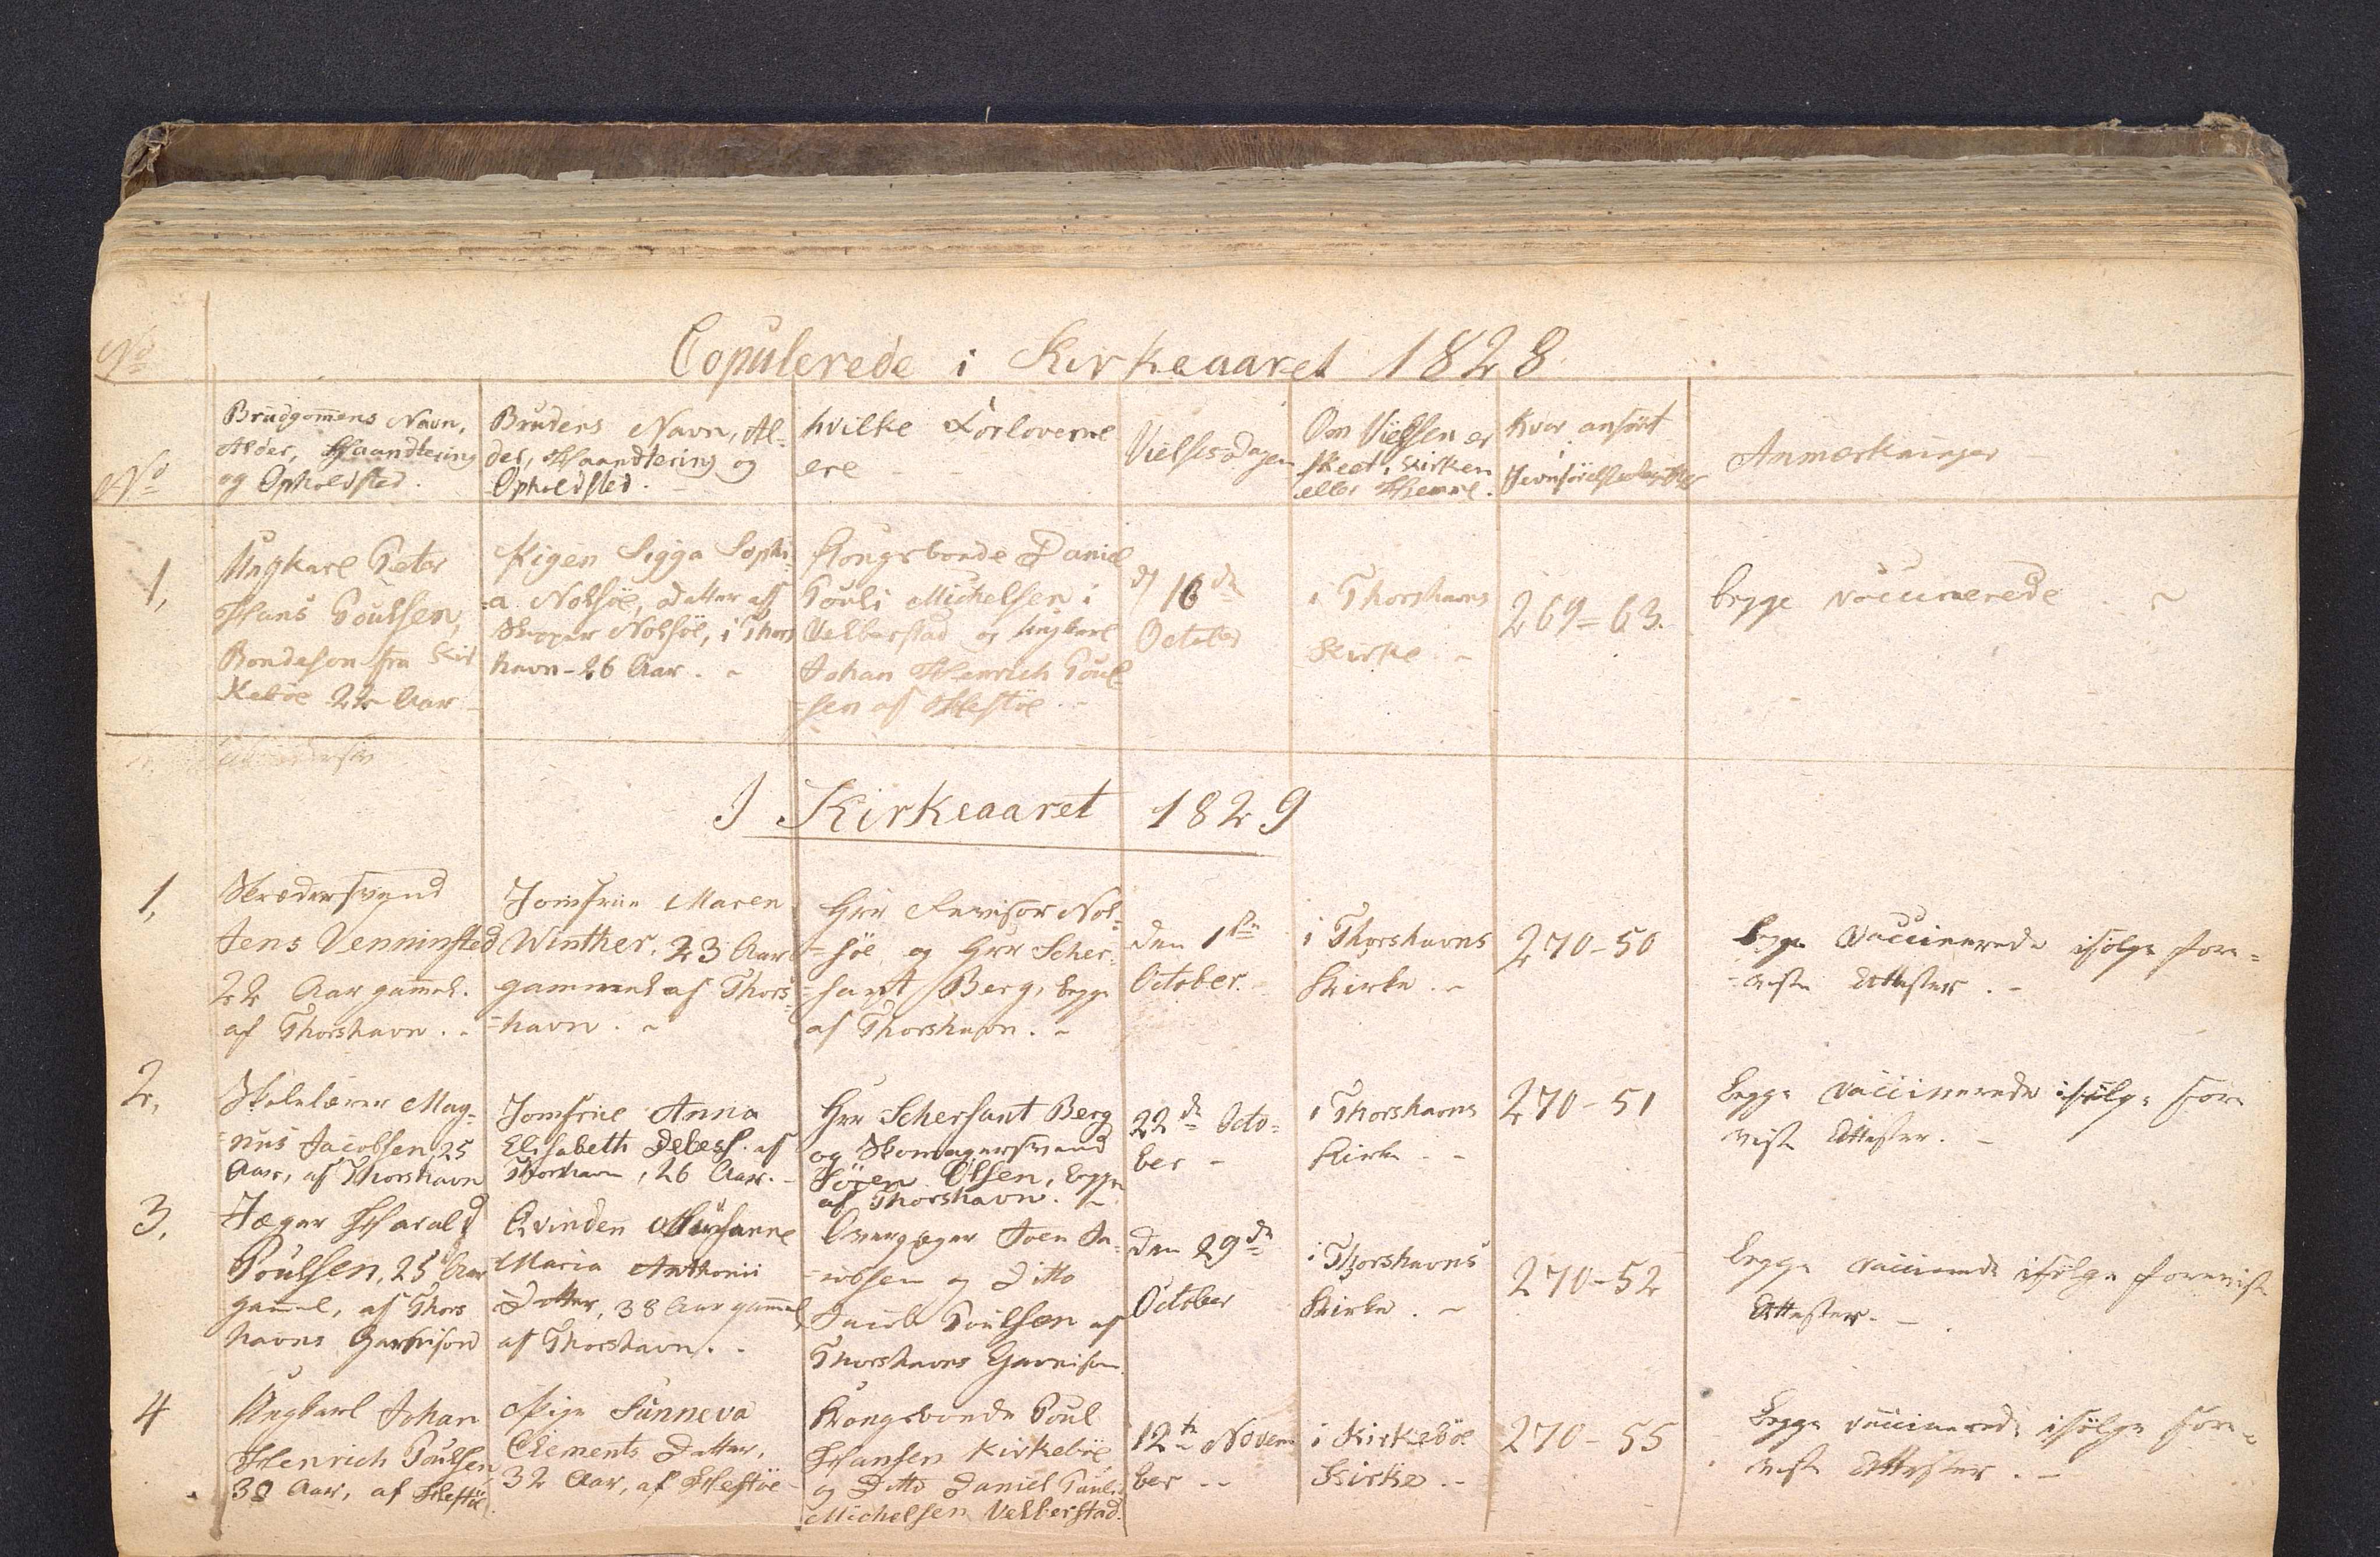 No
Copulerede i Kirkeaaret 1828
No
Brudgomens Navn,
Alder, Haandtering
og Opholdsted.
Brudens Navn, Al-
der, Haandtering og
Opholdsted.
hvilke Forloverne
ere
Vielsesdagen
Om Vielsen er
skeet i Kirken
eller Hiemme.
Hvor anført
i
Jevnførelsesregistret
Anmærkninger
1,
Ungkarl Peter
Hans Poulsen,
Bondeson fra Kir
kebøe 22 Aar
Pigen Sigga Sophi-
a Nolsøe, Datter af
Skipper Nolsøe, i Thors
havn - 26 Aar. -
Kongsbonde Daniel
Pouli Michelsen i
Velberstad og Ungkarl
Johan Henrich Poul-
sen af Hestøe
d 16de
October
i Thorshavns
Kirke. -
269=63.
begge vaccinerede. ~
I Kirkeaaret 1829
1,
Skrædersvend
Jens Venninsted
22 Aar gammel.
af Thorshavn. -
Jomfrue Maren
Winther, 23 Aar
gammel af Thors-
-havn. -
Hrr Revisor Nol-
-søe og Hrr Scher-
-sant Berg, begge
af Thorshavn. -
den 1ste
October.
i Thorshavns
Kirke. -
270-50
begge vaccinerede ifølge fore=
-viste Attester. -
2,
Skolelærer Mag-
-nus Jacobsen, 25
Aar, af Thorshavn
Jomfrue Anna
Elisabeth Debess. af
Thorshavn, 26 Aar. -
Hrr Schersant Berg
og Skomagersvend
Sören Olsen, begge
af Thorshavn. -
22de Octo-
ber -
i Thorshavns
Kirke - -
270-51
begge vaccinerede ifølge fore
viste Attester. -
3,
Jæger Harald
Poulsen, 25 Aar
gammel, af Thors
havns Garnison
Qvinden Susanne
Maria Anthonii
Datter, 38 Aar gammel
af Thorshavn. -
Overjæger Joen Ja-
-cobsen og Ditto
Jacob Poulsen af
Thorshavns Garnison.
den 29de
October
i Thorshavns
Kirke. -
270-52
begge vaccinerede ifølge foreviste
Attester. -
4
Ungkarl Johan
Henrich Poulsen
Aar, af Hestøe.
Pige Sunneva
Clements Datter,
32 Aar, af Hestøe
Kongsbonde Poul
Hansen Kirkebøe
og Ditto Daniel Pouli
Michelsen Velberstad.
12te Novem
ber - -
i Kirkebøe
Kirke. -
270-55
begge vaccinerede ifølge fore-
viste Attester. -